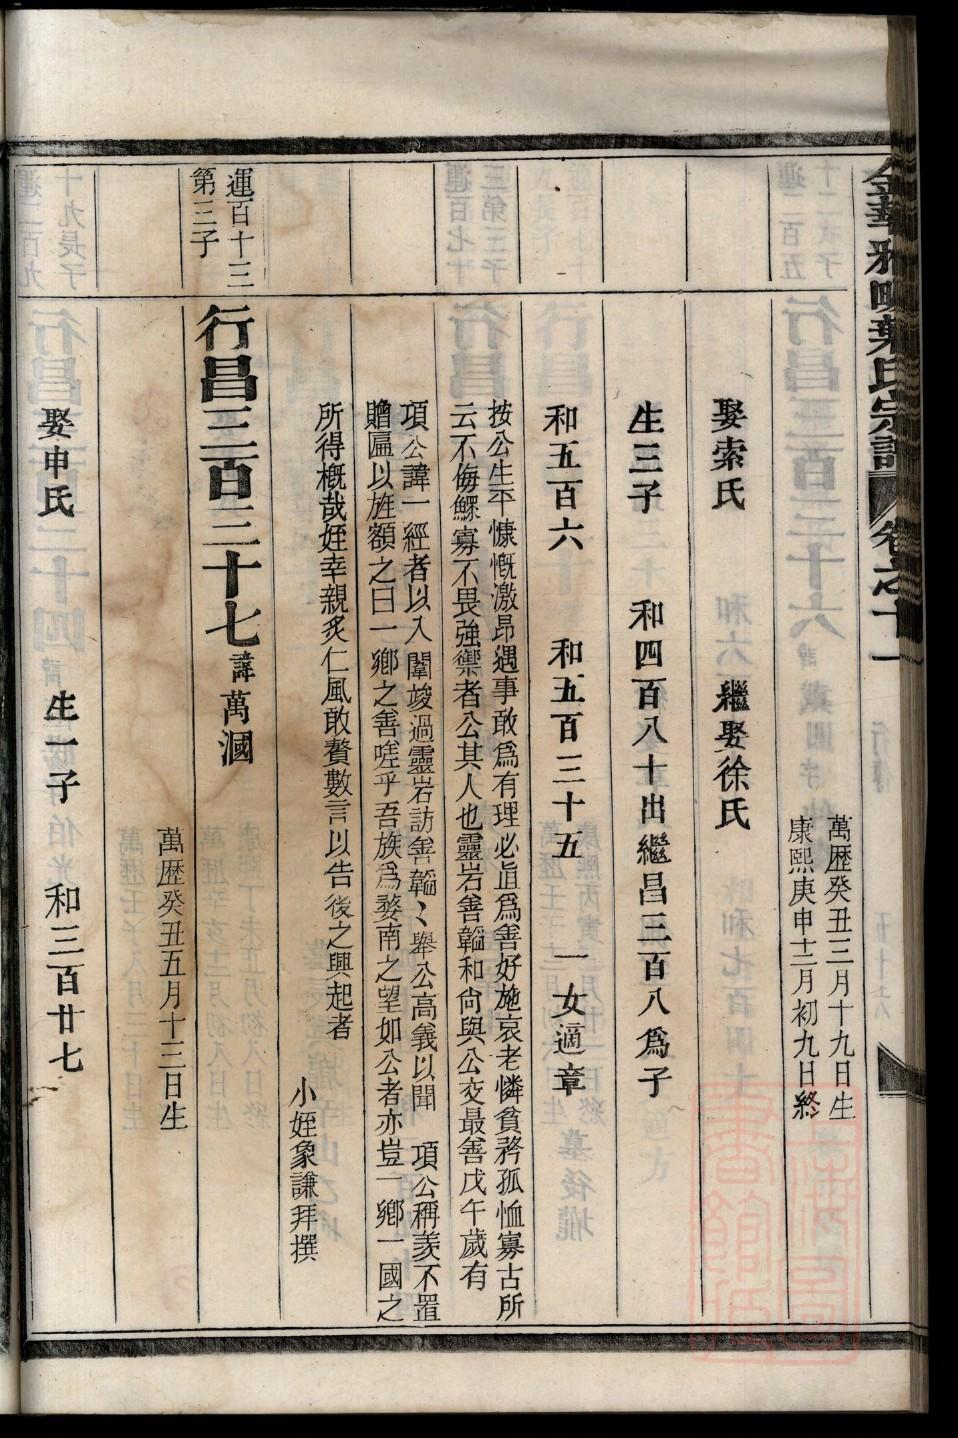 萬歷癸丑三月十九日生
康熙庚申十二月初九日終
娶索氏 繼娶徐氏
生三子 和四百八十出繼昌三百八爲子
和五百六 和五百三十五 一女適章
按公生平慷慨激昂遇事敢爲有理必直爲善好施哀老憐貧矜孤恤寡古所
云不侮鰥寡不畏強禦者公其人也靈岩善韜和尙與公交最善戊午歲有
項公諱一經者以入闈竣過靈岩訪善韜〻舉公高義以聞 項公稱羨不置
贈匾以旌額之曰一鄉之善嗟乎吾族爲婺南之望如公者亦豈一鄉一國之
所得槪哉姪幸親炙仁風敢贅數言以告後之興起者
小姪象謙拜撰
運百十三
第三子
行昌三百三十七諱萬漍
萬歷癸丑五月十三日生
娶申氏 生一子 和三百廿七